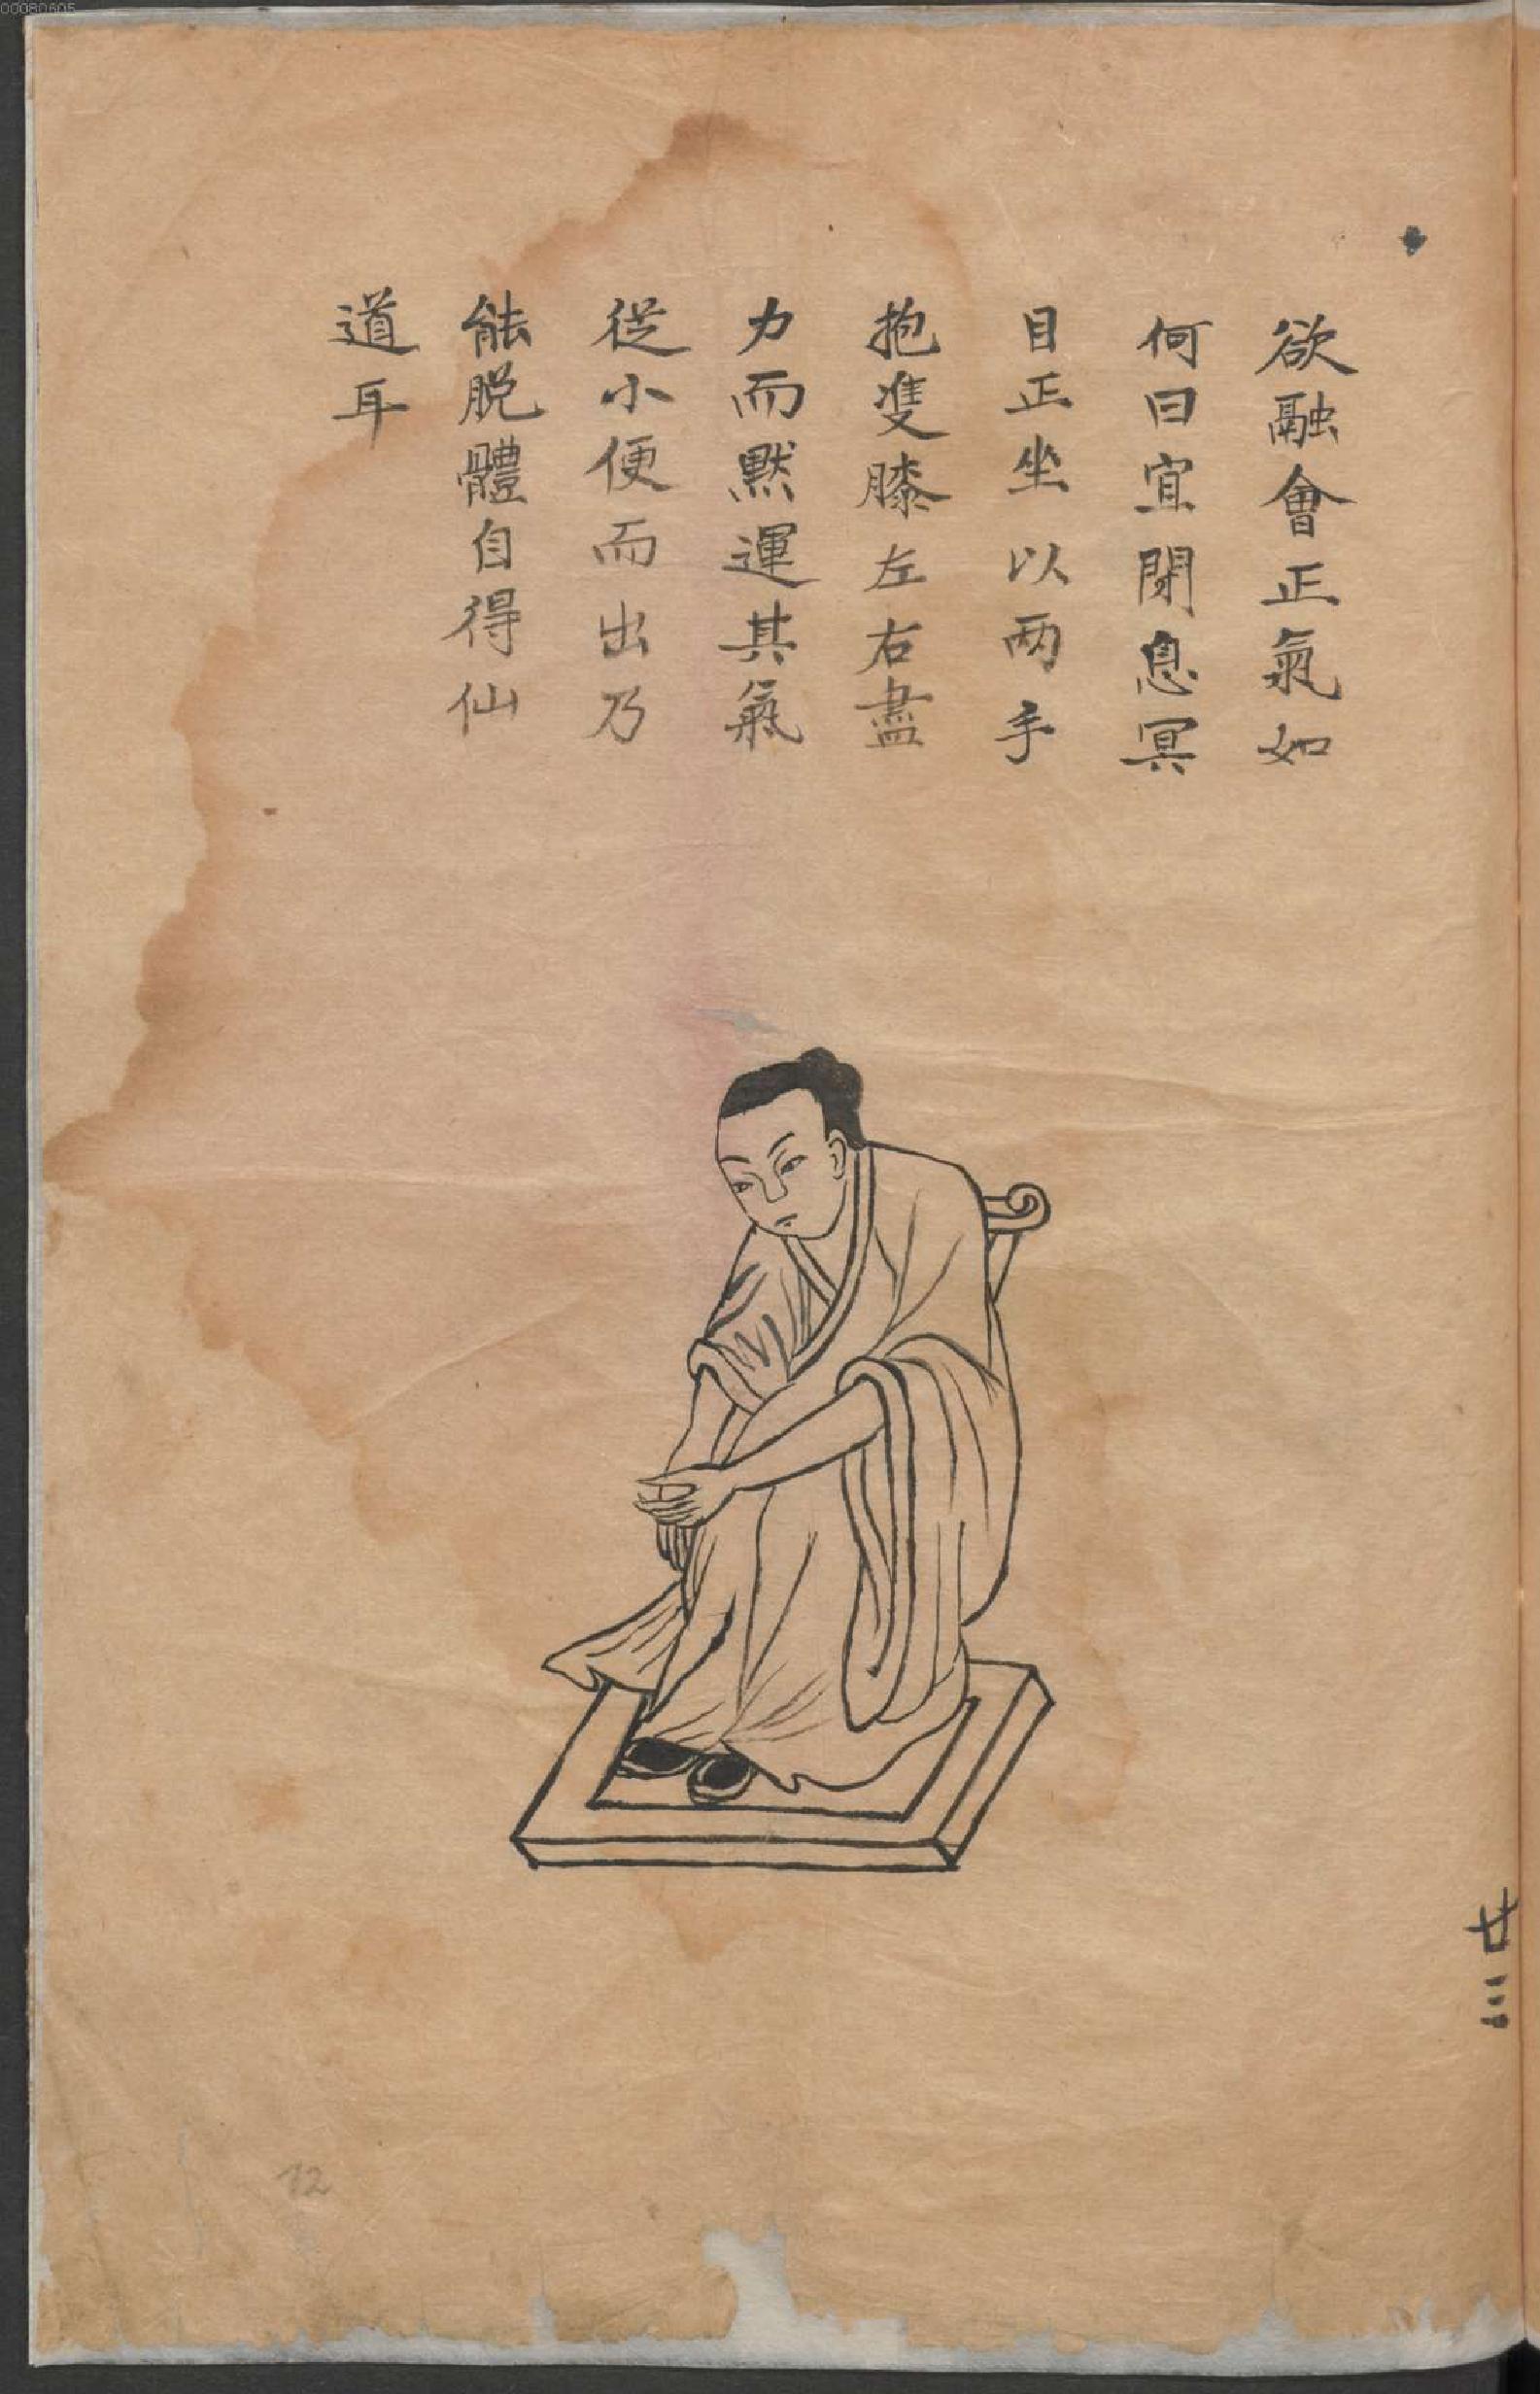 欲融會正氣如
何曰宜閉息冥
目正坐以両手
抱隻膝左右盡
力而默運其氣
從小便而出乃
能脫體自得仙
道耳
廿三
12
00080605